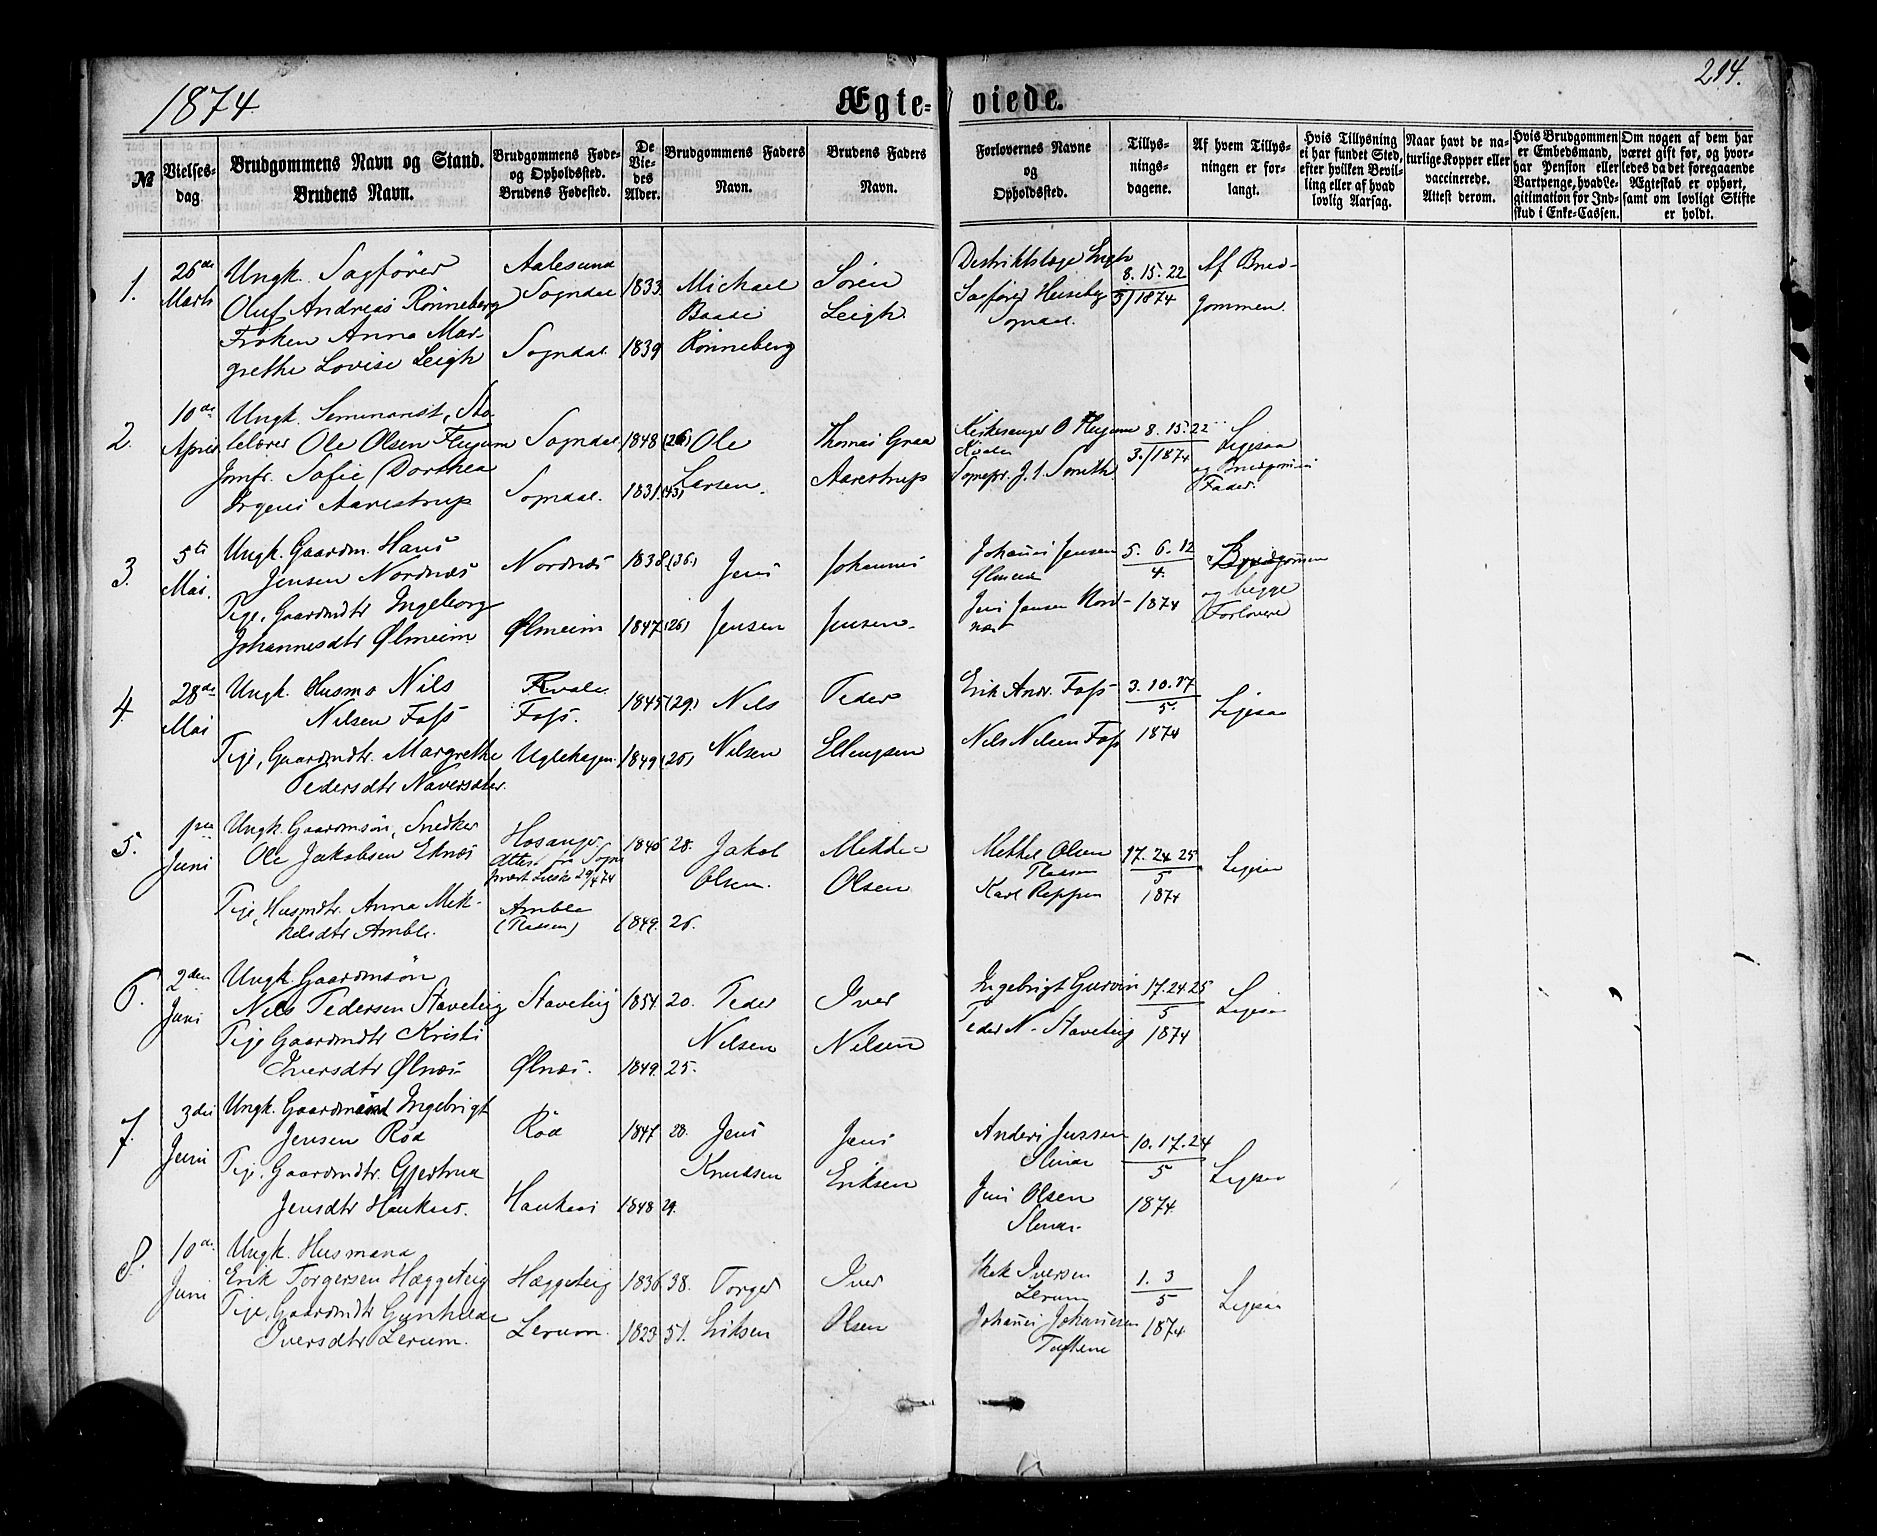 1874
Ægte-
viede.
214.
№
Vielses-
dag
Brudgommens Navn og Stand.
Brudens Navn.
Brudgommens Føde-
og Opholdssted.
Brudens Fødested.
De
Vie-
des
Alder.
Brudgommens Faders
Navn.
Brudens Faders
Navn.
Forlovernes Navne
og
Opholdssted.
Tillys-
nings-
dagene.
Af hvem Tillys-
ningen er for-
langt.
Hvis Tillysning
ei har fundet Sted,
efter hvilken Bevil-
ling eller af hvad
lovlig Aarsag.
Naar havt de na-
turlige Kopper eller
vaccinerede.
Attest derom.
Hvis Brudgommen
er Embedsmand,
har Pension eller
Vartpenge, hvad Le-
gitimation for Ind-
skud i Enke-Cassen.
Om nogen af dem har
været gift før, og hvor-
ledes da det foregaaende
Ægteskab er ophørt,
samt om lovligt Skifte
er holdt.
1.
26de
Marts
Ungk. Sagfører
Oluf Andreas Rønneberg
Frøken Anna Mar-
grethe Lovise Leigh
Aalesund
Sogndal
Sogndal
1833
1839
Michael
Baade
Rønneberg
Søren
Leigh
Distriktslæge
Sagfører Heiberg
Sogndal.
8. 15. 22
3/1874
Af Brud-
gommen.
2.
10de
April
Ungk. Seminarist,
Ole Olsen Flugum
Jomfr. Sofie Dorthea
Aarestrup
Sogndal
Sogndal.
1848 (26)
1831. (43)
Ole
Larsen.
Thomas Graa
Aarestrup
Kirkesanger O Flugum
Kvale
Sognepr. J. S. Smith.
8. 15. 22
3./1874
Ligesaa
og Brudgommens
Fader.
3.
5te
Mai.
Ungk. Gaardm. Hans
Jensen Nordnæs
Pige, Gaardmdtr Ingeborg
Johannesdtr Ølmeim
Nordnæs
Ølmeim
1838 (36.)
1847 (26)
Jens
Jensen
Johannes
Jensen.
Johannes Jensen
Ølmeim
Jens Jensen Nord-
næs
5. 6. 12
4.
1874
Brudgommen
og begge
Forlovere
4.
28de
Mai
Ungk. Husmd Nils
Nilsen Foss
Pige, Gaardmdtr. Margrethe
Pedersdtr Navarsæter.
Kvale
Foss.
Uglehagen.
1845 (29.)
1849 (25)
Nils
Nilsen
Peder
Ellingsen
Erik Andr. Foss
Nils Nilsen Foss
3. 10. 17
5
1874
Ligesaa
5.
1ste
Juni
Ungk. Gaardmsøn, Snedker
Ole Jakobsen Eknæs
Pige, Husmdtr. Anna Mik-
kelsdtr Amble.
Hosanger
29/4 74
Amble
(Plassen)
1846 28.
1849. 26.
Jakob
Olsen.
Mikkel
Olsen
Mikkel Olsen
Plassen
Karl Reppen
17. 24 25
5
1874
Ligesaa
6.
2den
Juni
Ungk. Gaardmsøn
Nils Pedersen Staveteig
Pige Gaardmdtr Kristi
Iversdtr Ølnæs
Staveteig
Ølnæs.
1854 20.
1849. 25.
Peder
Nilsen
Iver
Nilsen
Ingebrigt Gurvin
Peder N. Staveteig
17. 24. 25
5
1874
Ligesaa
7.
3die
Juni
Ungk. Gaardmand Ingebrigt
Jensen Rød
Pige. Gaardmdtr. Gjertrud
Jensdtr Haukaas.
Rød
Haukaas
1847 28.
1848 29.
Jens
Knudsen
Jens
Eriksen
Anders Jussen
Stenar
Jens Olsen
Stenar
10. 17. 24
5
1874
Ligesaa
8.
10de
Juni
Ungk. Husmand
Erik Torgersen Hæggeteig
Pige, Gaardmdtr Gunhilde
Iversdtr Lerum.
Hæggeteig
Lerum.
1836 38.
1823 51.
Torger
Eriksen
Iver
Olsen
Iversen
Lerum
Johannes Johannesen
Tuftene
1. 3
5
1874.
Ligesaa